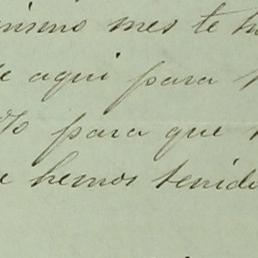 mismo mes te h
e aqui para
para que
e hemos tenid